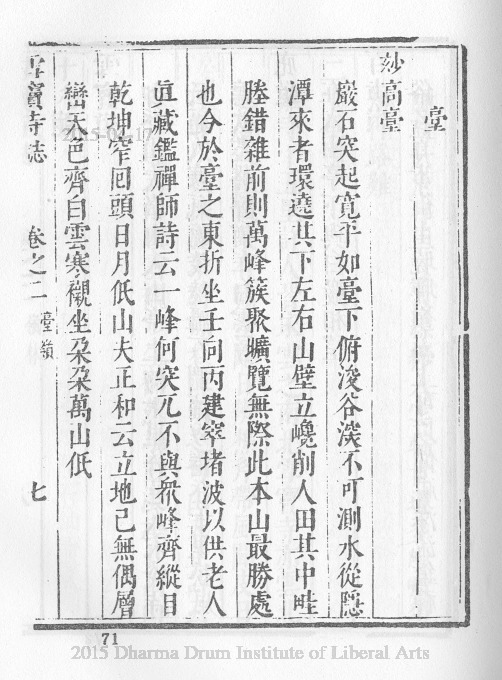 臺
妙高臺
巖石突起寬平如臺下俯浚谷淡不可測水從隱
潭來者環遶其下左右山壁立巉削人田其中畦
塍錯雜前則萬峰簇聚曠覽無際此本山最勝處
也今於臺之東折坐壬向丙建窣堵波以供老人
眞藏鑑禪師詩云一峰何突兀不與衆峰齊縱目
乾坤窄回頭日月低山夫正和云立地已無偶層
巒天邑齊白雲寒襯坐朶朶萬山低
雪竇寺誌 卷之二 臺嶺 七
71
2015 Dharma Drum Institute of Liberal Arts